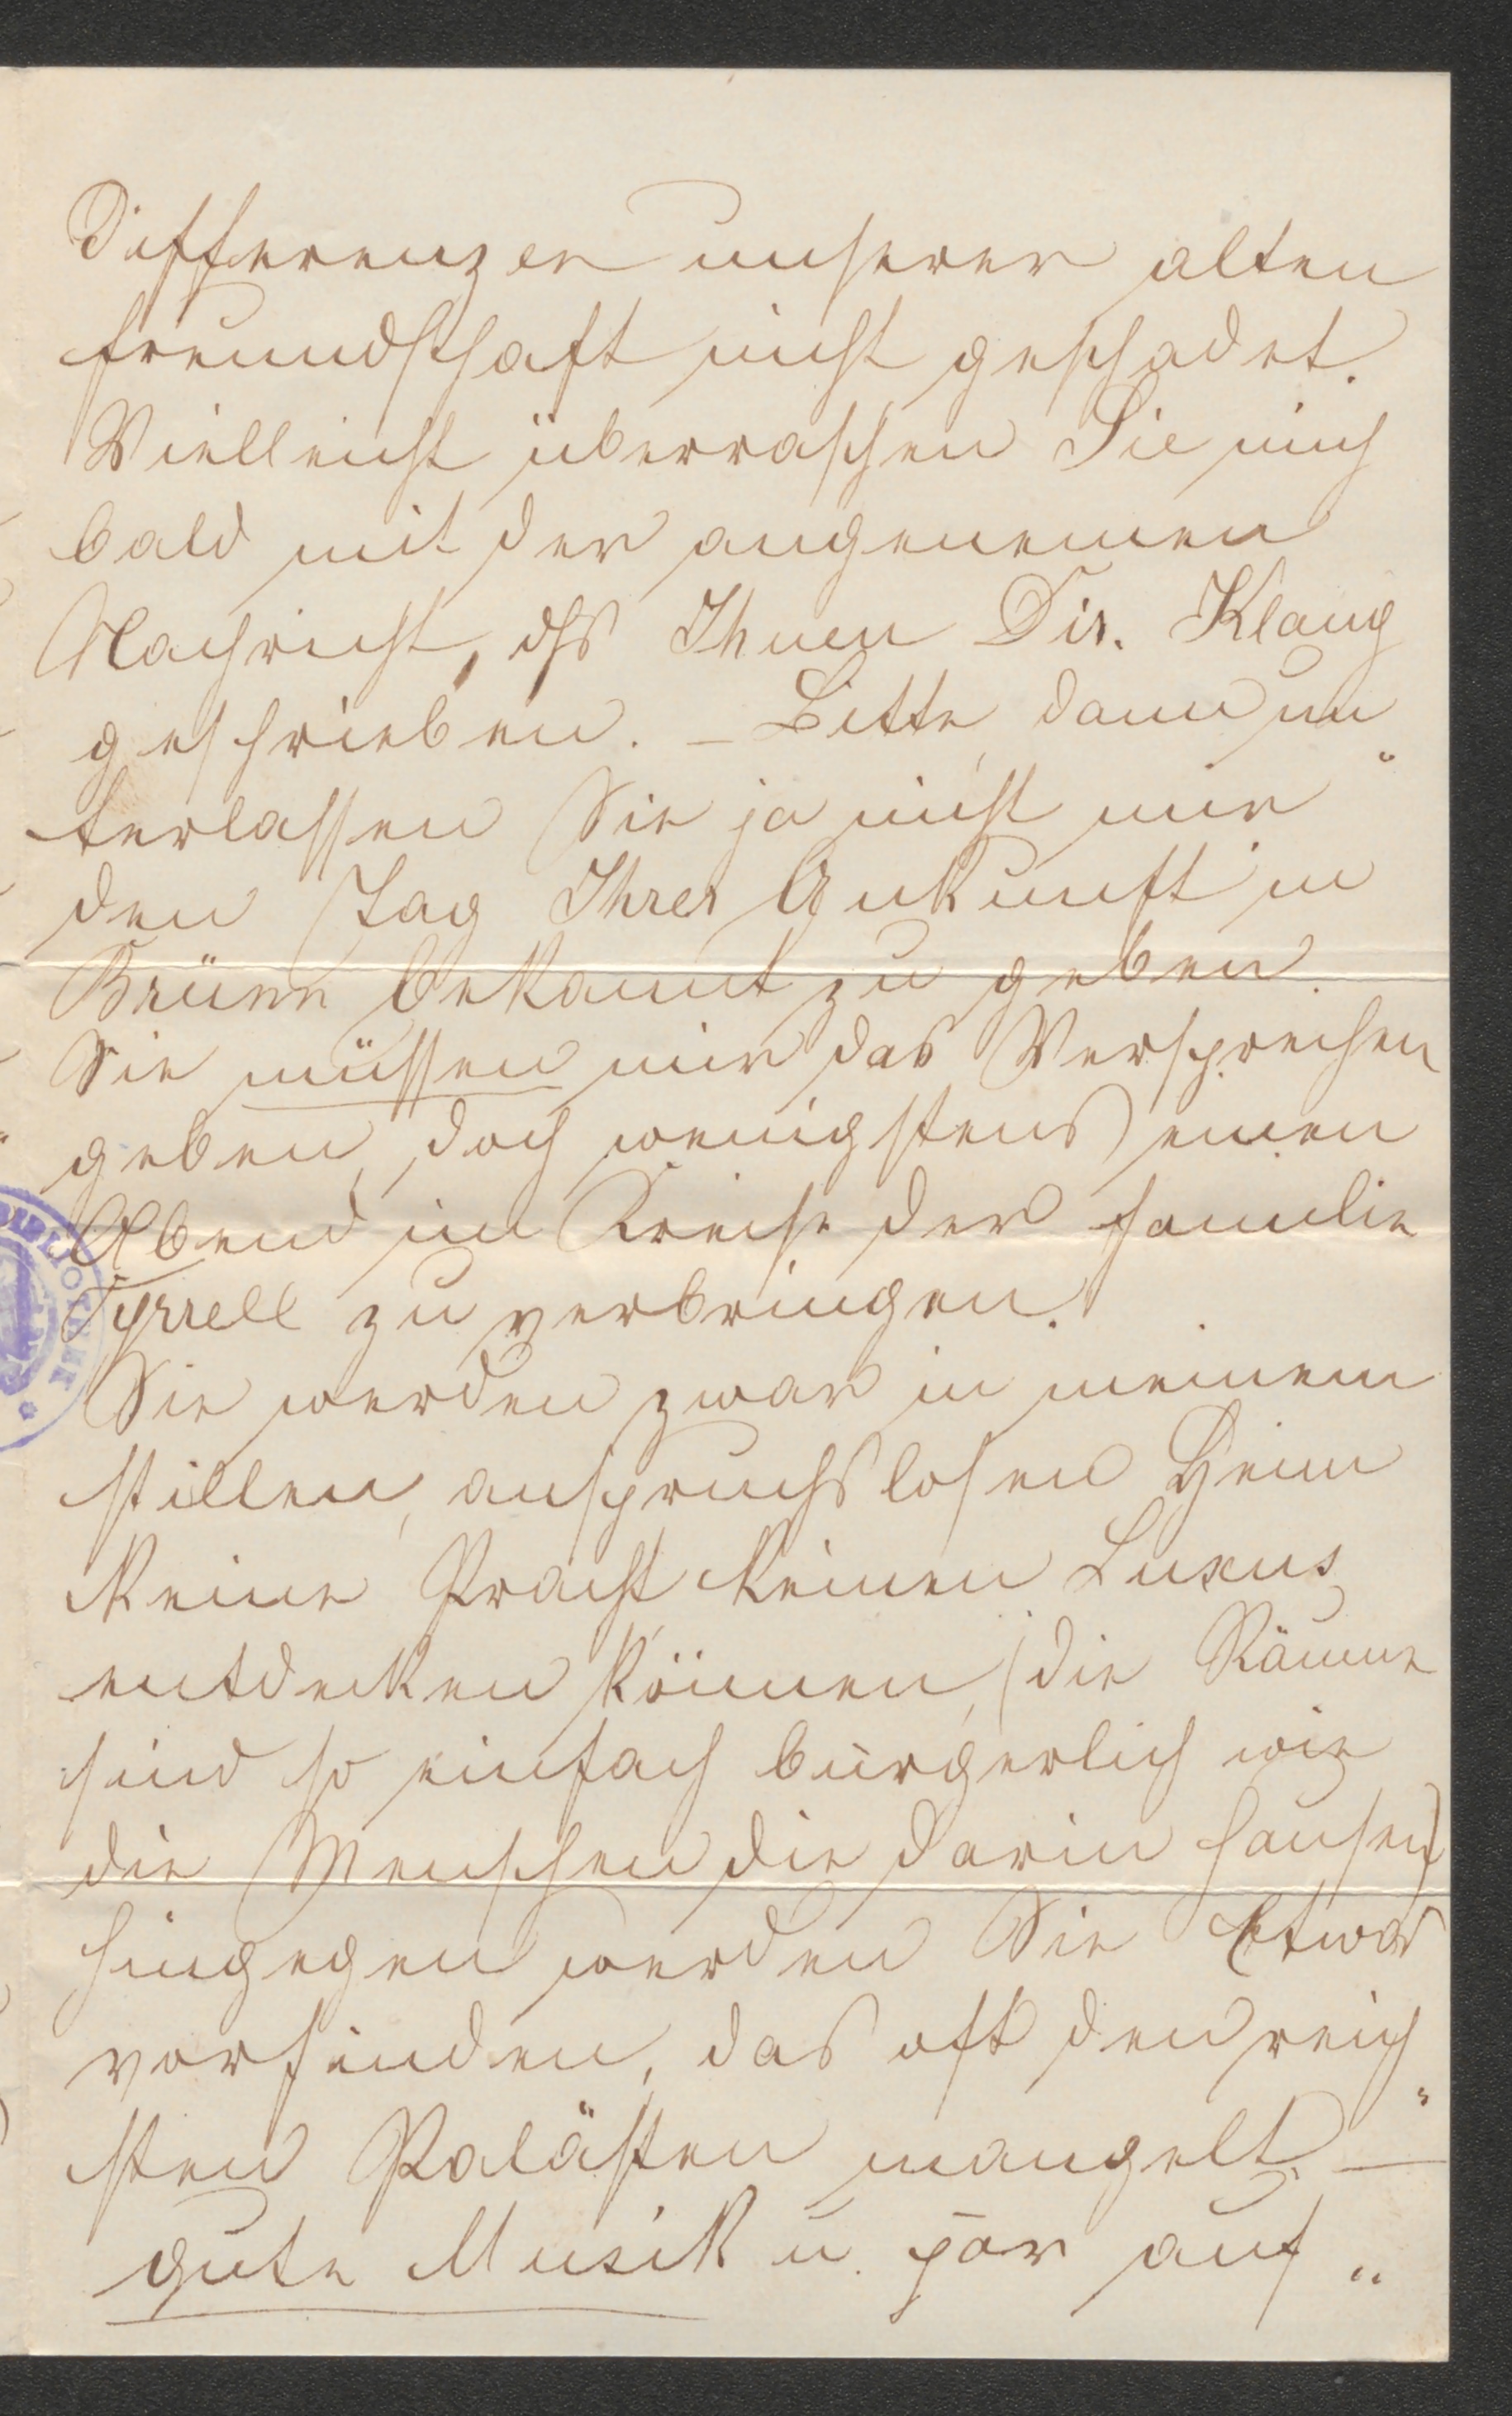 Differenzen unserer alten
Freundschaft nicht geschadet.
Vielleicht überraschen Sie mich
bald mit der angenemen
Nachricht, dß Ihnen Dir. Klang
geschrieben. – Bitte, dann un„
terlassen Sie ja nicht mir
den Tag Ihrer Ankunft in
Brünn bekannt zu geben.
Sie müssen mir das Versprechen
geben, doch wenigstens einen
Abend im Kreise der Familie
Tyrrell zu verbringen.
Sie werden zwar in meinem
stillen, anspruchslosen Heim
keine Pracht keinen Luxus
entdecken können, (die Räume
sind so einfach bürgerlich wie
die Menschen die darin hausen)
hingegen werden Sie Etwas
vorfinden, das oft den reich„
sten Palästen mangelt –
gute Musik u. par auf„